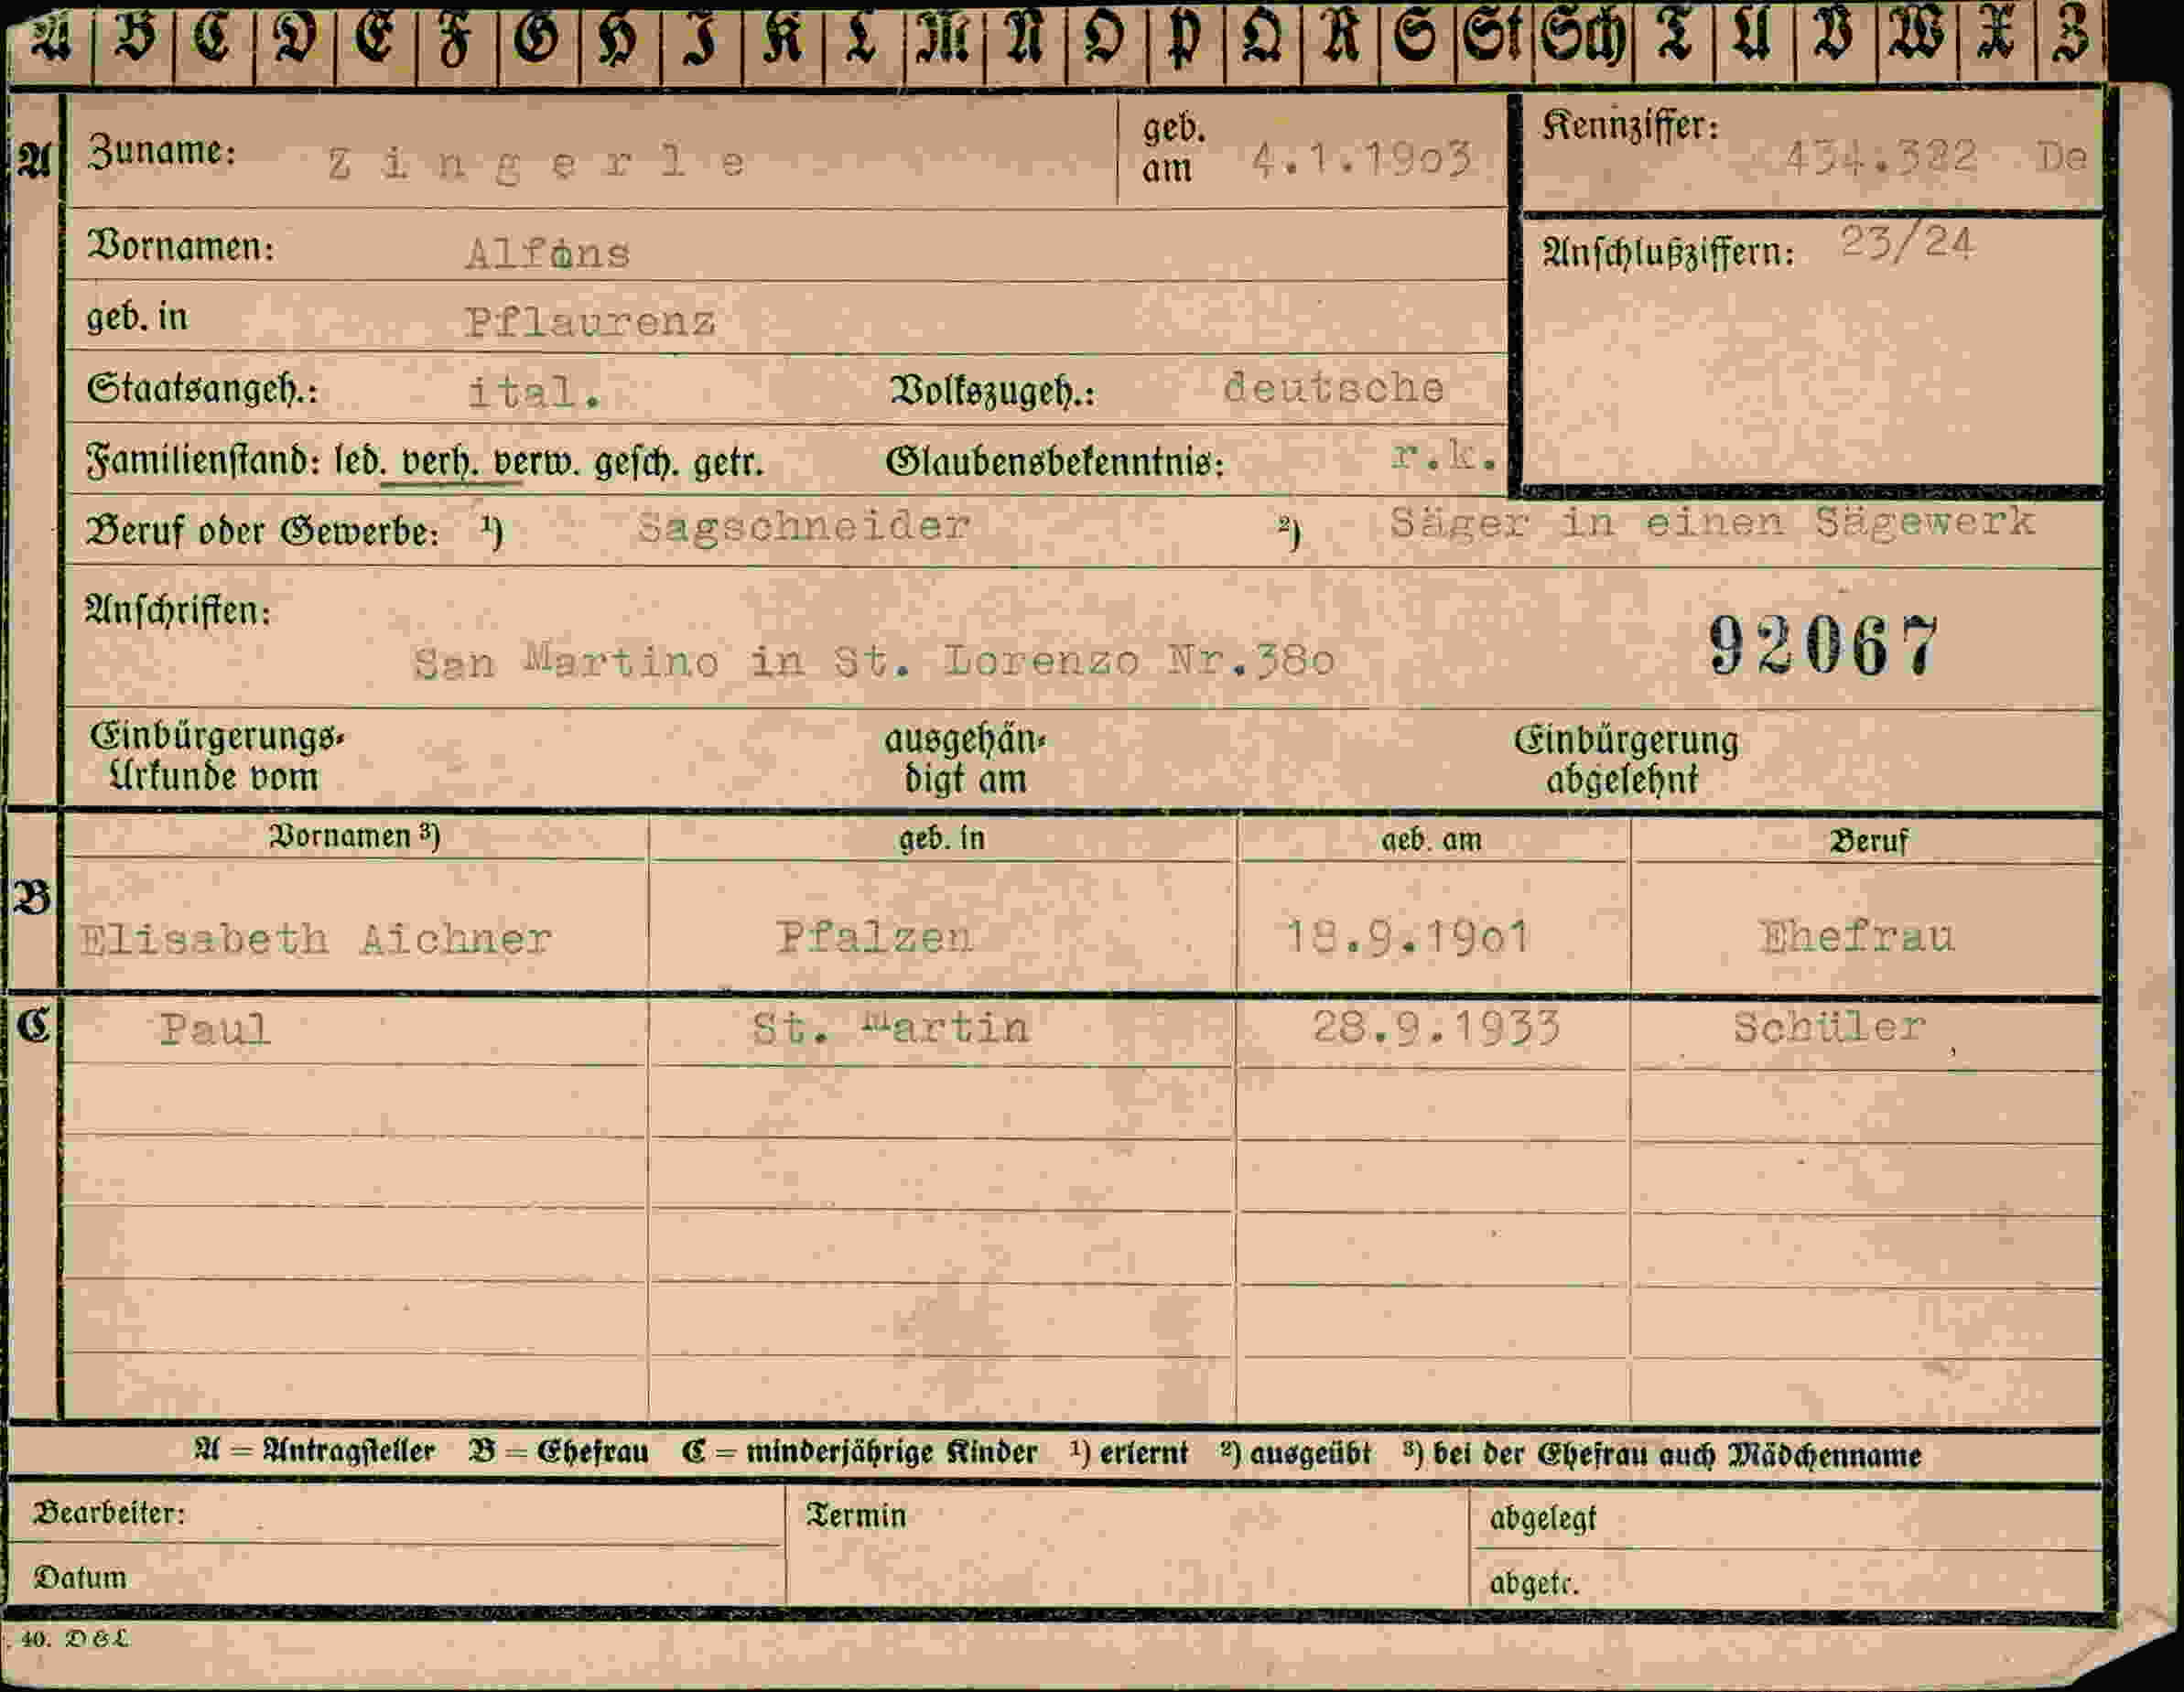 A B C D E F G H I K L M N O P Q R S St Sch T U V W X Z
A Zuname: Zingerle geb. am 4.1.19o3 Kennziffer: 434.322 De
Vornamen: Alfons Anschlußziffern: 23/24
geb. in Pflaurenz
Staatsangeh.: ital. Volkszugeh.: deutsche
Familienstand: led. verh. verw. gesch. getr. Glaubensbekenntnis: r.k.
Beruf oder Gewerbe: ¹) Sagschneider ²) Säger in einen Sägewerk
Anschriften:
San Martino in St. Lorenzo Nr.38o 92067
Einbürgerungs- ausgehän- Einbürgerung
Urkunde vom digt am abgelehnt
Vornamen ³) geb. in geb. am Beruf
B Elisabeth Aichner Pfalzen 18.9.19o1 Ehefrau
C Paul St. Martin 28.9.1933 Schüler
A = Antragsteller B = Ehefrau C = minderjährige Kinder ¹) erlernt ²) ausgeübt ³) bei der Ehefrau auch Mädchenname
Bearbeiter: Termin abgelegt
Datum abgetr.
40. D&L